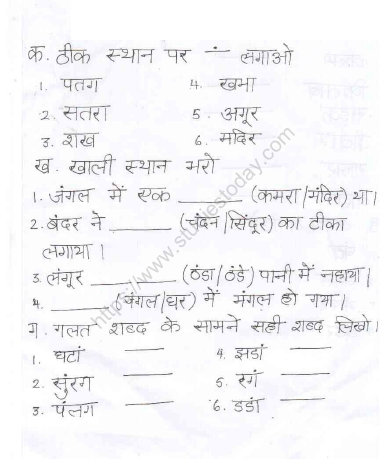 क. ठीक स्थान पर ं लगाओ
1. पतग 4. खभा
2. सतरा 5. अगूर
3. शख 6. मदिर
ख. खाली स्थान भरो
1. जंगल में एक ______ (कमरा/मंदिर) था।
2. बंदर ने ______ (चंदन/सिंदूर) का टीका
लगाया।
3. लंगूर ______ (ठंडा/ठंडे) पानी में नहाया।
4. ______ (जंगल/घर) में मंगल हो गया।
ग. गलत शब्द के सामने सही शब्द लिखो।
1. घटां ____ 4. झडां ____
2. सुंरग ____ 5. रगं ____
3. पंलग ____ 6. डडां ____
https://www.studiestoday.com